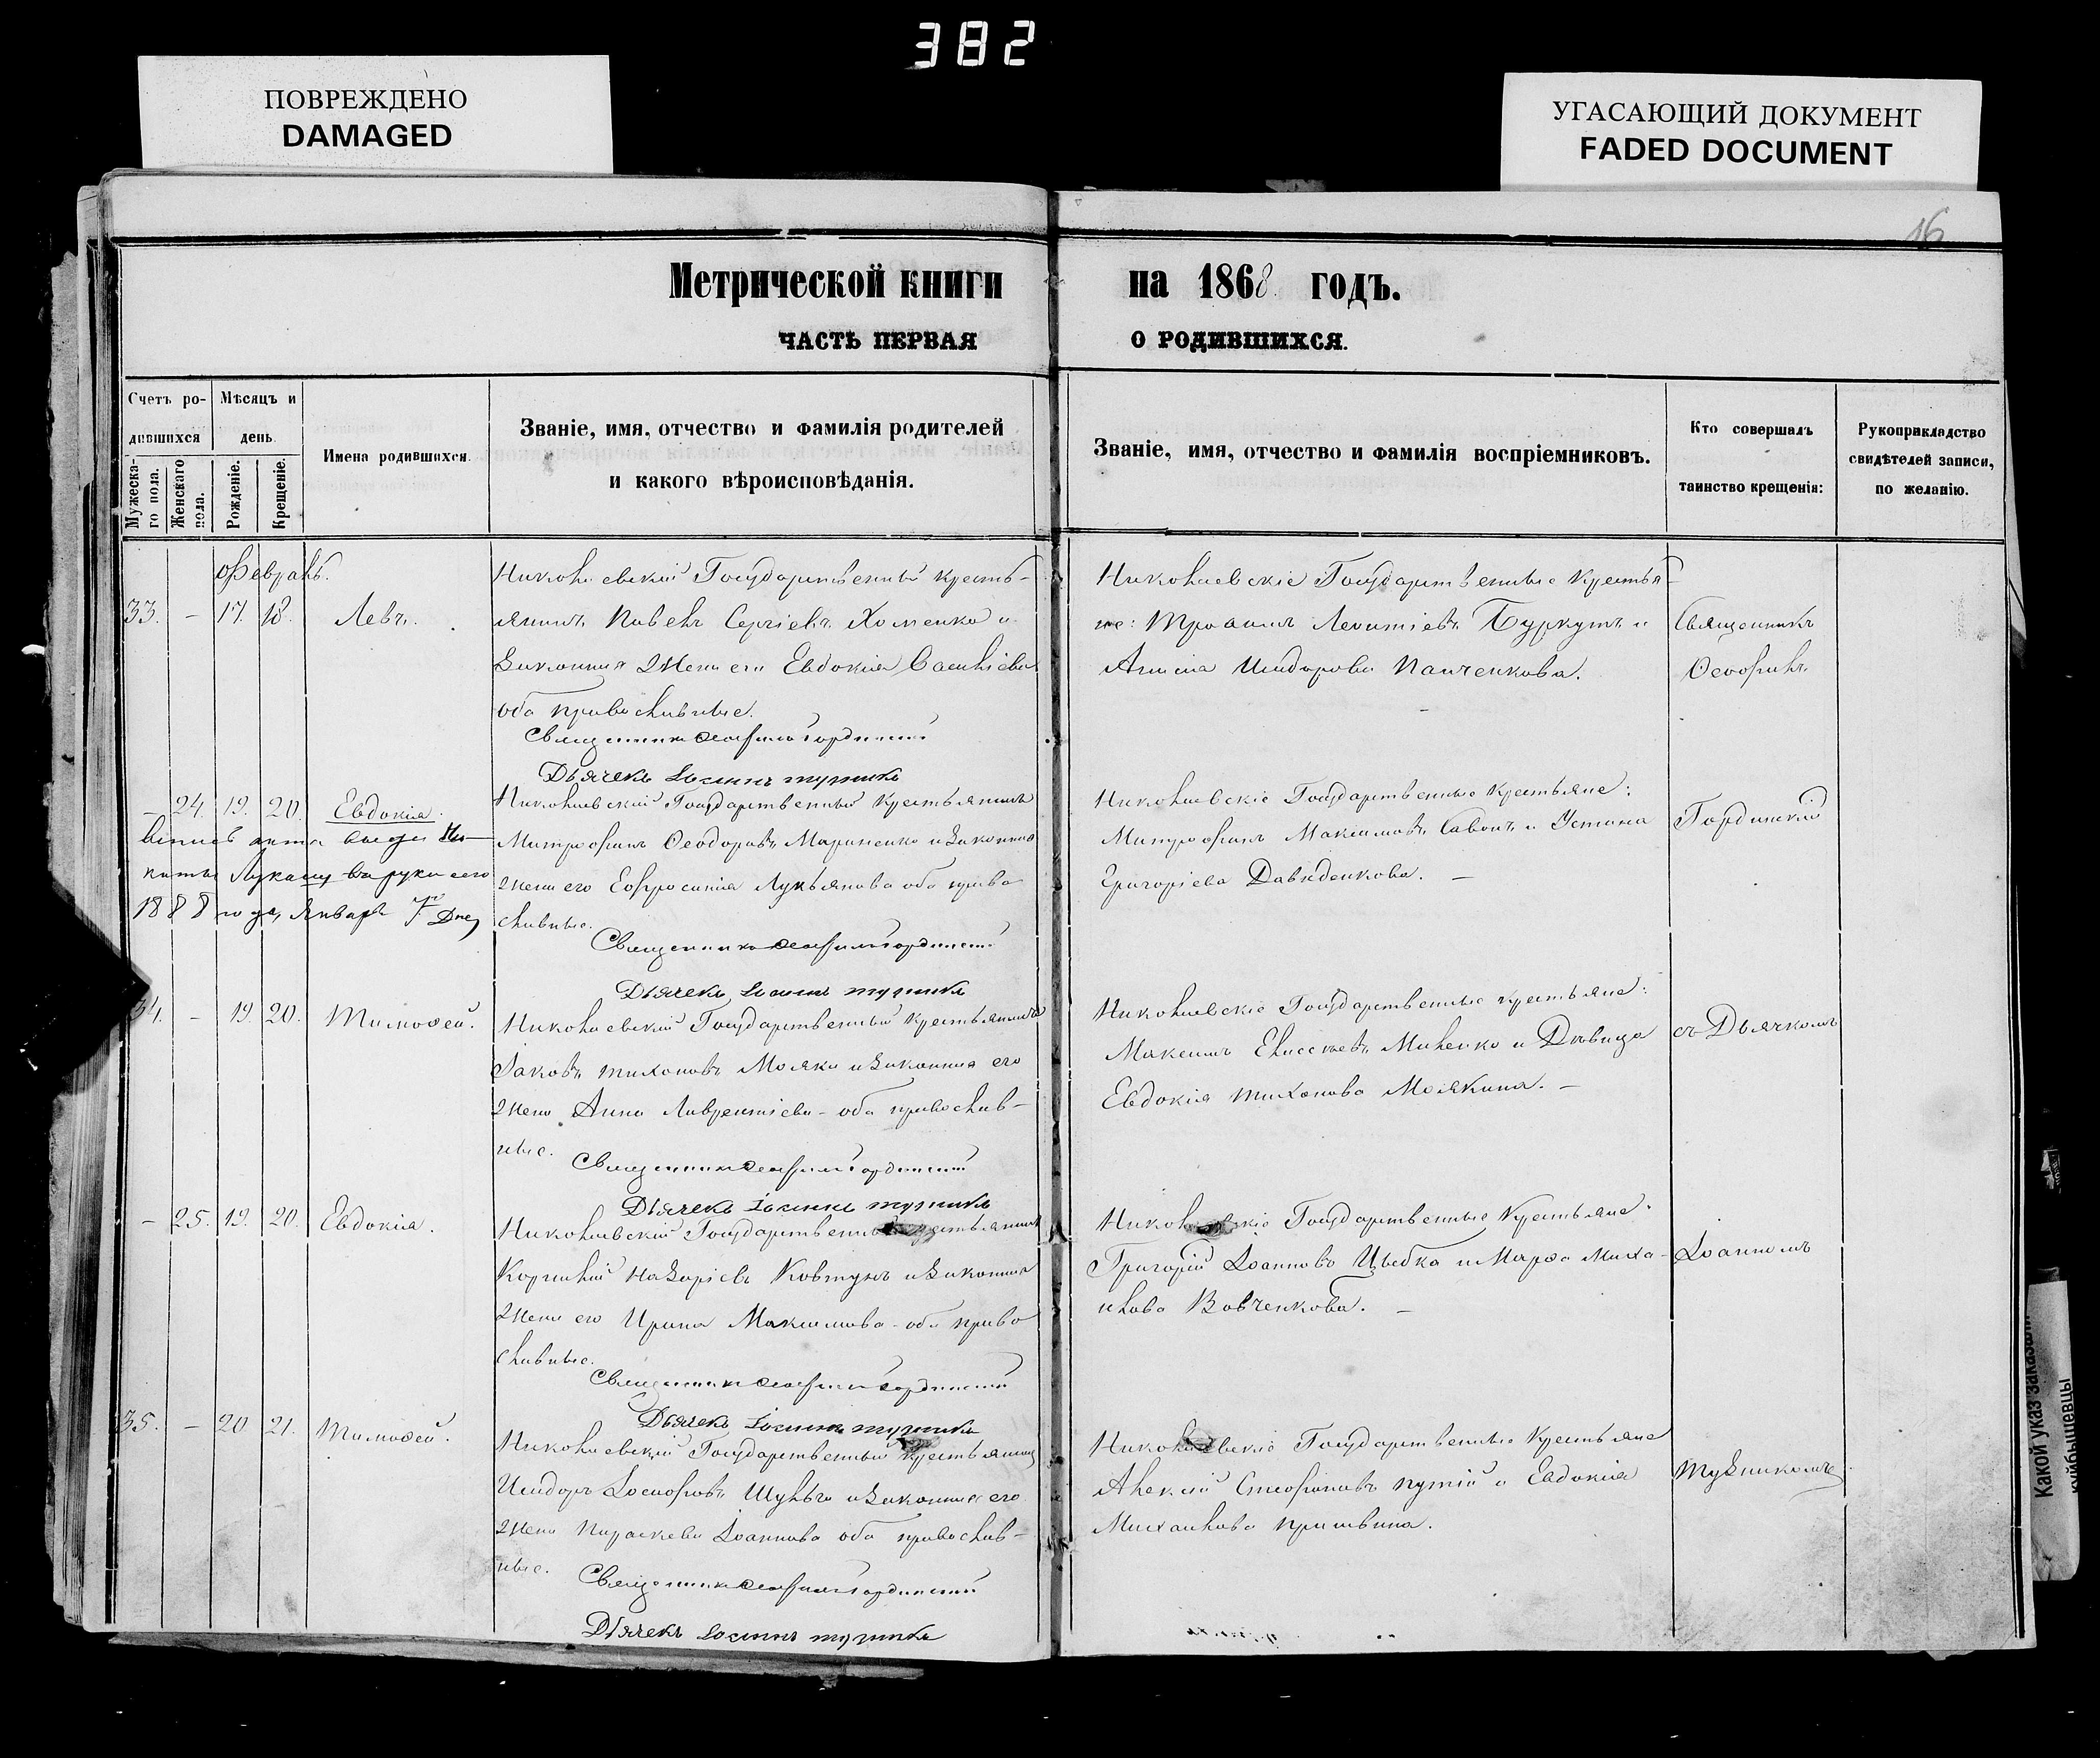 382
ПОВРЕЖДЕНО
DAMAGED
УГАСАЮЩИЙ ДОКУМЕНТ
FADED DOCUMENT
16
Метрической книги на 1868 годъ.
ЧАСТЬ ПЕРВАЯ О РОДИВШИХСЯ.
Счетъ ро-
дившихся
Мужеска-
го пола.
Женскаго
пола.
Мѣсяцъ и
день.
Рожденіе.
Крещеніе.
Имена родившихся.
Званіе, имя, отчество и фамилія родителей
и какого вѣроисповѣданія.
Званіе, имя, отчество и фамилія воспріемниковъ.
Кто совершалъ
таинство крещенія:
Рукоприкладство
свидѣтелей записи,
по желанію.
Февраль.
33. – 17. 18. Левъ.
Николаевскій Государственный кресть-
янинъ Павелъ Сергіевъ Хоменко и
Законная жена его Евдокія Васильева
оба православные.
Священникъ Ѳеофилъ Гординскій
Дьячекъ Іоаннъ
Николаевскіе Государственные Крестья-
не: Трофимъ Леонтіевъ Буркутъ и
Анисія Исидорова Панченкова.
Священникъ
Ѳеофилъ
– 24. 19. 20. Евдокія.
1888 года, Января 7 Дня
Николаевскій Государственный Крестьянинъ
Митрофанъ Ѳеодоровъ Мариненко и Законная
жена его Евфросинія Лукьянова оба право
славные.
Священникъ Ѳеофилъ Гординскій
Дьячекъ Іоаннъ
Николаевскіе Государственные Крестьяне:
Митрофанъ Максимовъ Савонъ и Устина
Григоріева Давиденкова. –
Гординскій
34. – 19. 20. Тимоѳей.
Николаевскій Государственный Крестьянинъ
Іаковъ Тихоновъ Моляка и Законная его
жена Анна Лаврентіева – оба православ-
ные.
Священникъ Ѳеофилъ Гординскій
Дьячекъ Іоаннъ
Николаевскіе Государственные крестьяне:
Максимъ Елисеевъ Миленко и Дѣвица
Евдокія Тихонова Молякина. –
съ Дьячкомъ
– 25. 19. 20. Евдокія.
Николаевскій Государственный Крестьянинъ
Корнилій Назаріевъ Ковтунъ и Законная
жена его Ирина Максимова – оба право
славные.
Священникъ Ѳеофилъ Гординскій
Дьячекъ Іоаннъ
Николаевскіе Государственные Крестьяне:
Григорій Іоанновъ Цыбка и Марѳа Миха-
илова Вовченкова. –
Іоанномъ
35. – 20 21. Тимоѳей.
Николаевскій Государственный Крестьянинъ
Исидоръ Іосифовъ Шульга и Законная его
жена Параскева Іоаннова оба православ-
ные.
Священникъ Ѳеофилъ Гординскій
Дьячекъ Іоаннъ
Николаевскіе Государственные Крестьяне
Алексій Стефановъ Путій и Евдокія
Михаилова
Какой указ заказан
куйбышевцы